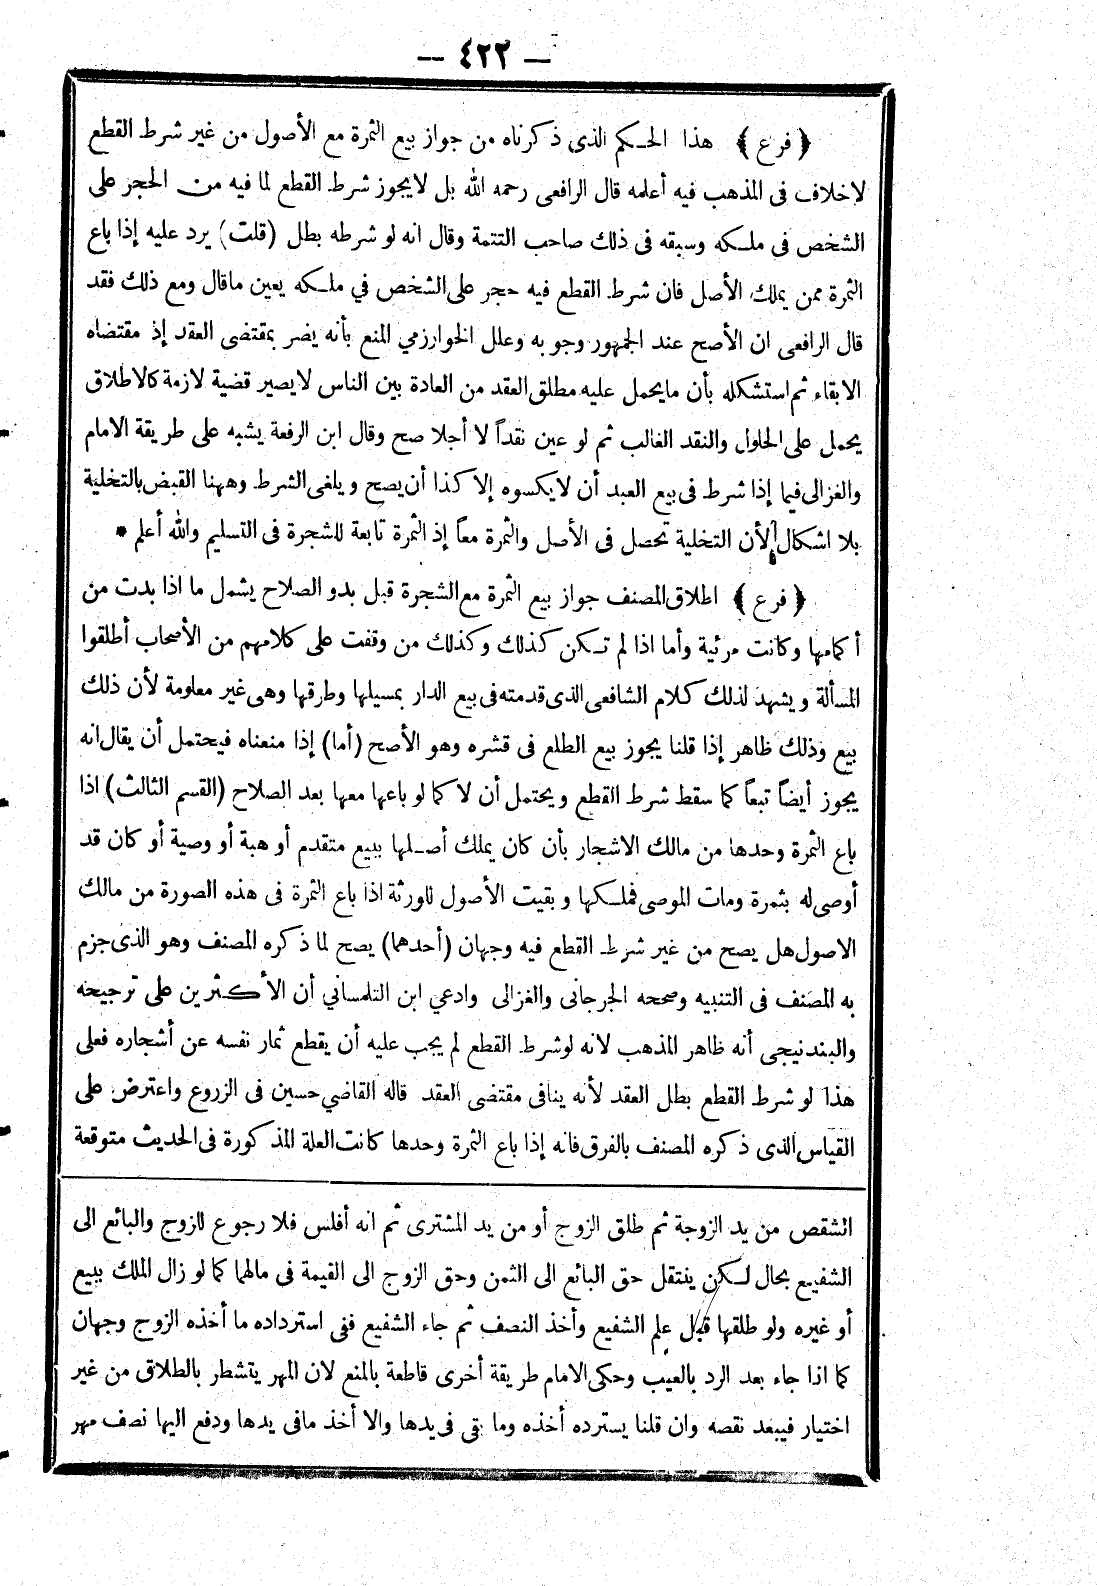 — ٤٢٢ —
﴿ فرع ﴾ هذا الحكم الذى ذكرناه من جواز بيع الثمرة مع الأصول من غير شرط القطع
لاخلاف فى المذهب فيه أعلمه قال الرافعى رحمه الله بل لايجوز شرط القطع لما فيه من الحجر على
الشخص فى ملكه وسبقه فى ذلك صاحب التتمة وقال انه لو شرطه بطل (قلت) يرد عليه إذا باع
الثمرة ممن يملك الأصل فان شرط القطع فيه حجر على الشخص في ملكه يعين ماقال ومع ذلك فقد
قال الرافعى ان الأصح عند الجمهور وجوبه وعلل الخوارزمي المنع بأنه يضر بمقتضى العقد إذ مقتضاه
الابقاء ثم استشكله بأن مايحمل عليه مطلق العقد من العادة بين الناس لايصير قضية لازمة كالاطلاق
يحمل على الحلول والنقد الغالب ثم لو عين نقداً لا أجلا صح وقال ابن الرفعة يشبه على طريقة الامام
والغزالى فيما إذا شرط فى بيع العبد أن لايكسوه إلا كذا أن يصح ويلغى الشرط وههنا القبض بالتخلية
بلا اشكال لأن التخلية تحصل فى الأصل والثمرة معاً إذ الثمرة تابعة للشجرة فى التسليم والله أعلم *
﴿ فرع ﴾ اطلاق المصنف جواز بيع الثمرة مع الشجرة قبل بدو الصلاح يشمل ما اذا بدت من
أكمامها وكانت مرئية وأما اذا لم تكن كذلك وكذلك من وقفت على كلامهم من الأصحاب أطلقوا
المسألة ويشهد لذلك كلام الشافعى الذى قدمته فى بيع الدار بمسيلها وطرقها وهى غير معلومة لأن ذلك
بيع وذلك ظاهر إذا قلنا يجوز بيع الطلع فى قشره وهو الأصح (أما) إذا منعناه فيحتمل أن يقال انه
يجوز أيضاً تبعاً كما سقط شرط القطع ويحتمل أن لا كما لو باعها معها بعد الصلاح (القسم الثالث) اذا
باع الثمرة وحدها من مالك الاشجار بأن كان يملك أصلها ببيع متقدم أو هبة أو وصية أو كان قد
أوصى له بثمرة ومات الموصى فملكها وبقيت الأصول للورثة اذا باع الثمرة فى هذه الصورة من مالك
الاصول هل يصح من غير شرط القطع فيه وجهان (أحدهما) يصح لما ذكره المصنف وهو الذى جزم
به المصنف فى التنبيه وصححه الجرجانى والغزالى وادعي ابن التلمساني أن الأكثرين على ترجيحه
والبندنيجى أنه ظاهر المذهب لانه لوشرط القطع لم يجب عليه أن يقطع ثمار نفسه عن أشجاره فعلى
هذا لو شرط القطع بطل العقد لأنه ينافى مقتضى العقد قاله القاضي حسين فى الزروع واعترض على
القياس الذى ذكره المصنف بالفرق فانه إذا باع الثمرة وحدها كانت العلة المذكورة فى الحديث متوقعة
الشقص من يد الزوجة ثم طلق الزوج أو من يد المشترى ثم انه أفلس فلا رجوع للزوج والبائع الى
الشفيع بحال لكن ينتقل حق البائع الى الثمن وحق الزوج الى القيمة فى مالهما كما لو زال الملك ببيع
أو غيره ولو طلقها قبل علم الشفيع وأخذ النصف ثم جاء الشفيع ففى استرداده ما أخذه الزوج وجهان
كما اذا جاء بعد الرد بالعيب وحكى الامام طريقة أخرى قاطعة بالمنع لان المهر يتشطر بالطلاق من غير
اختيار فيبعد نقصه وان قلنا يسترده أخذه وما بقى فى يدها والا أخذ مافى يدها ودفع اليها نصف مهر